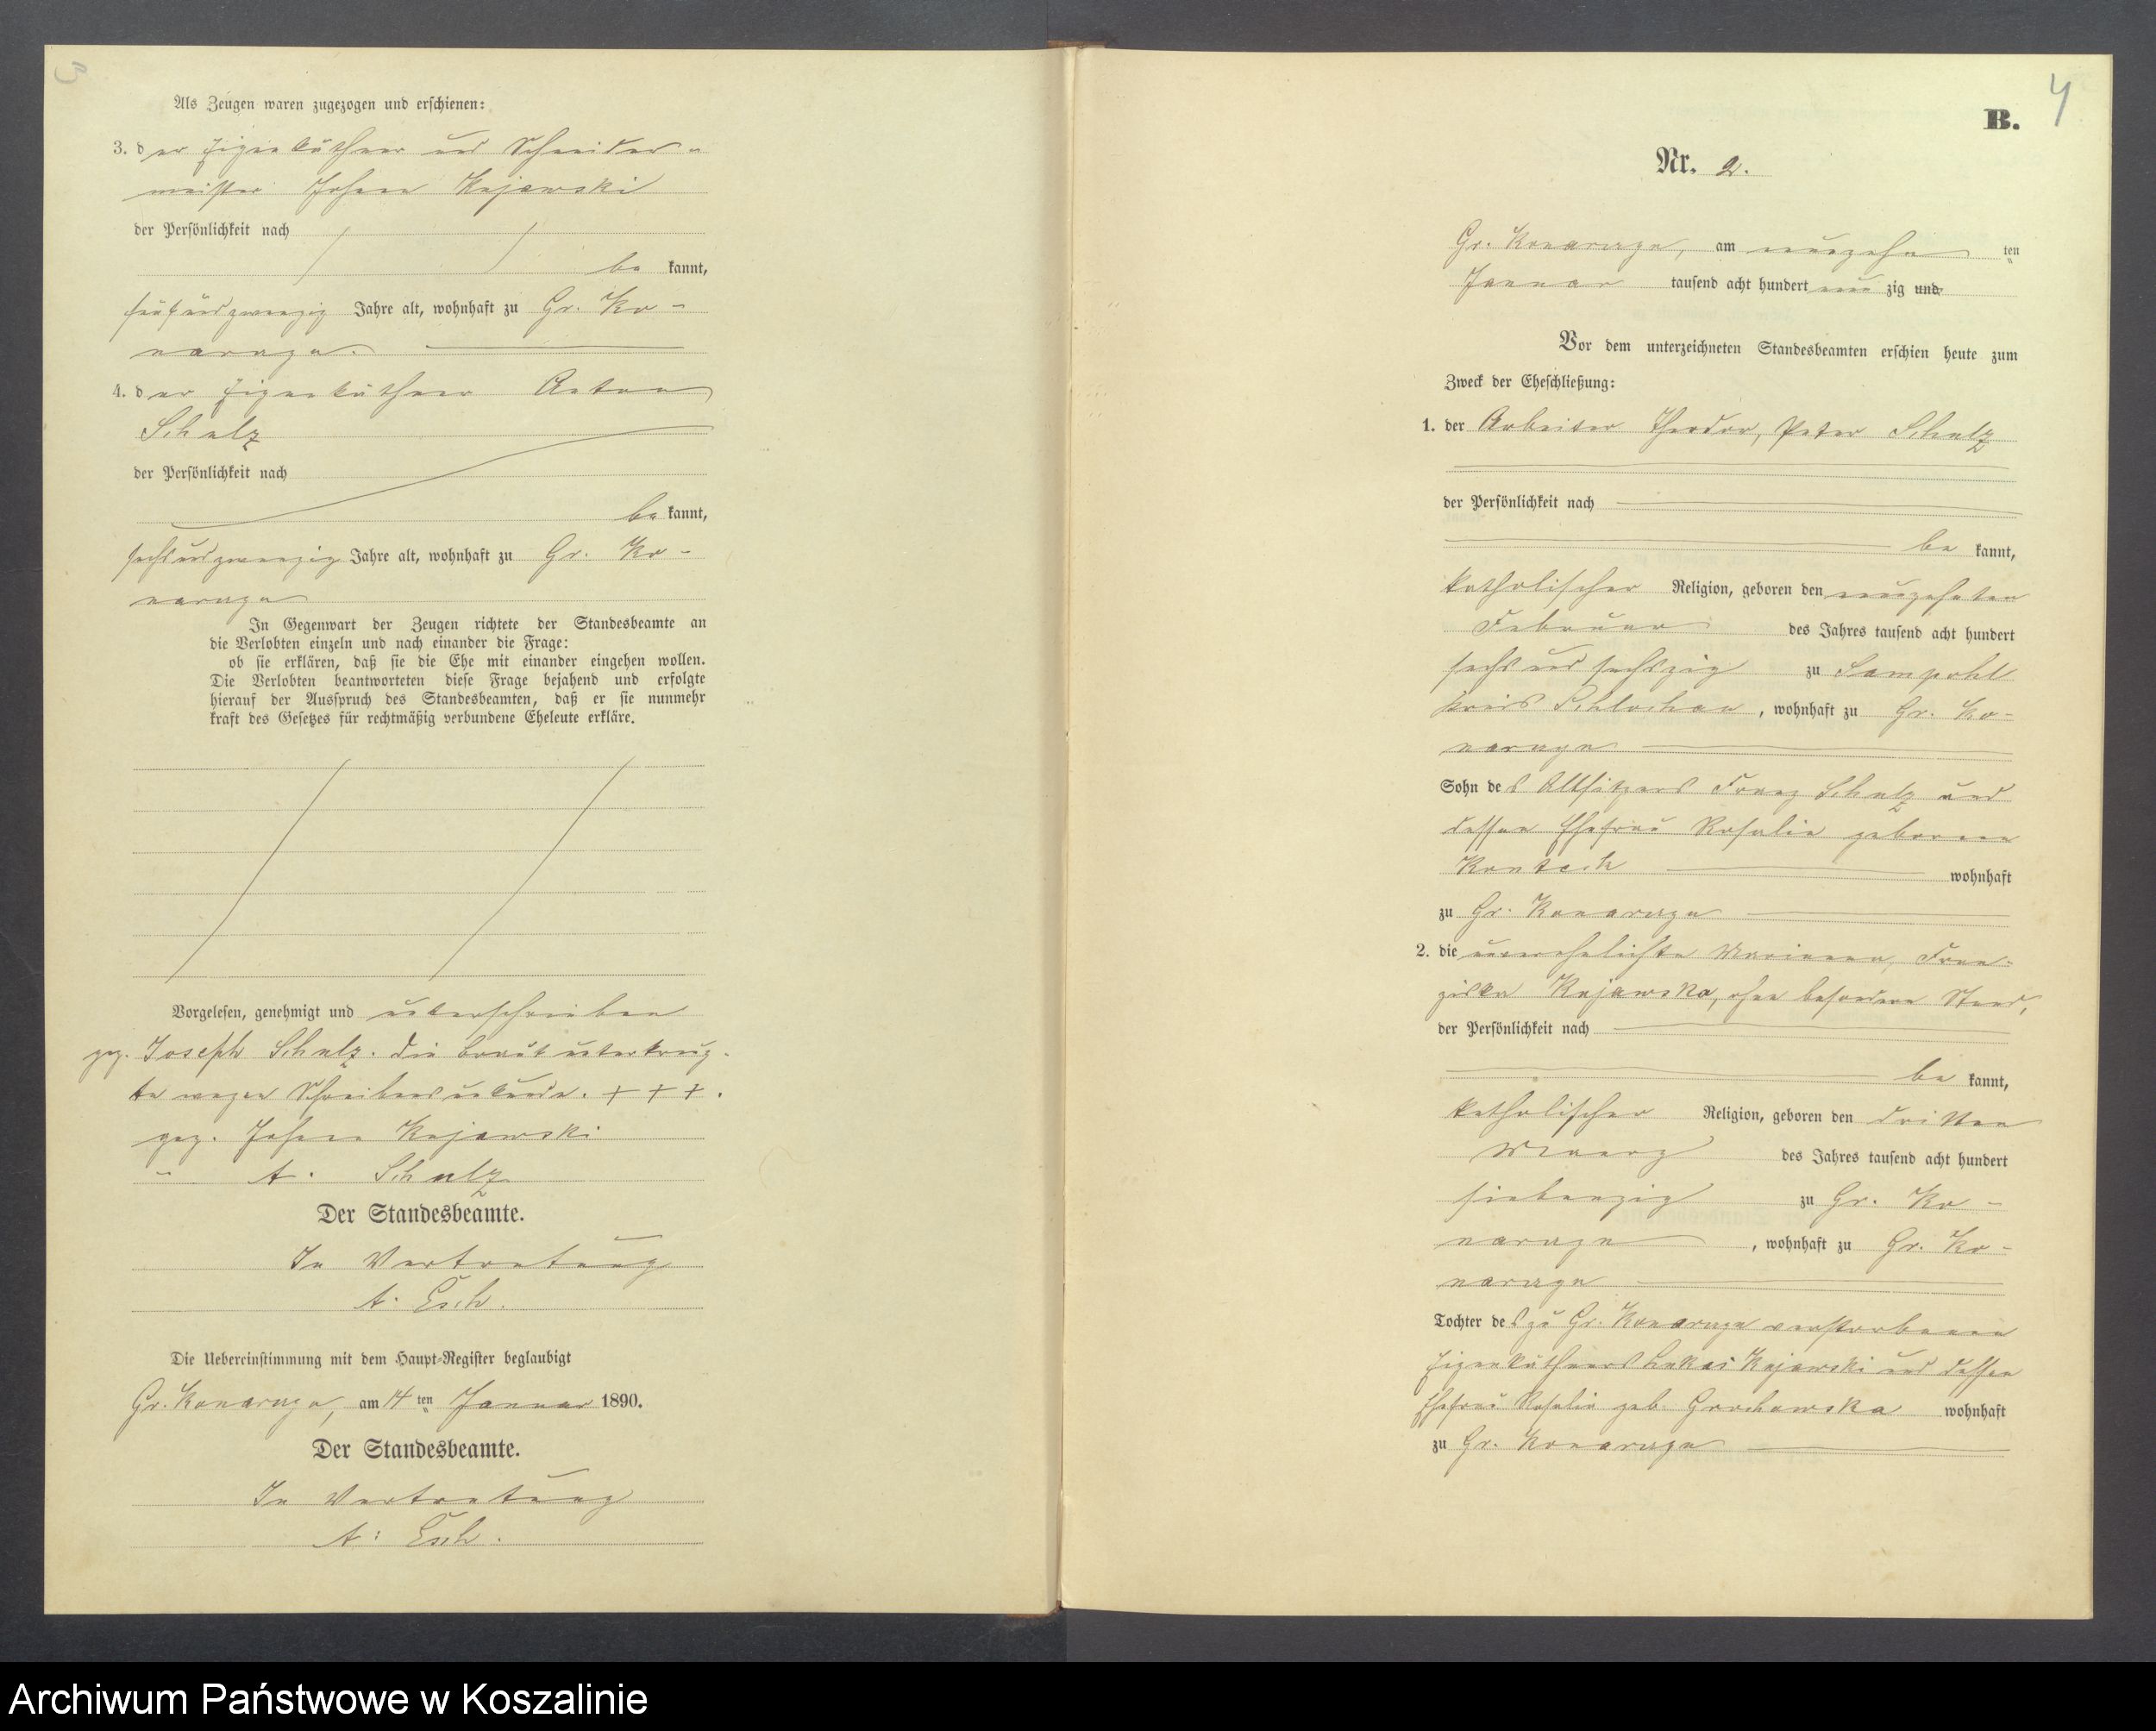 3
Als Zeugen waren zugezogen und erschienen:
3. der Eigenkäthner und Schneider-
meister Johann Kujawski
der Persönlichkeit nach
be kannt,
fünfundzwanzig Jahre alt, wohnhaft zu Gr. Ko-
narzyn.
4. der Eigenkäthner Anton
Schulz
der Persönlichkeit nach
be kannt,
sechsundzwanzig Jahre alt, wohnhaft zu Gr. Ko-
narzyn
In Gegenwart der Zeugen richtete der Standesbeamte an
die Verlobten einzeln und nach einander die Frage:
ob sie erklären, daß sie die Ehe mit einander eingehen wollen.
Die Verlobten beantworteten diese Frage bejahend und erfolgte
hierauf der Ausspruch des Standesbeamten, daß er sie nunmehr
kraft des Gesetzes für rechtmäßig verbundene Eheleute erkläre.
Vorgelesen, genehmigt und unterschrieben
gez. Joseph Schulz. Die Braut unterkreuz-
te wegen Schreibensunkunde. + + + .
gez. Johann Kujawski
" A. Schulz
Der Standesbeamte.
In Vertretung
A. Esch.
Die Uebereinstimmung mit dem Haupt-Register beglaubigt
Gr. Konarzyn, am 14 ten Januar 1890.
Der Standesbeamte.
In Vertretung
A: Esch.
4
B.
Nr. 2.
Gr. Konarzyn, am neunzehn ten
Januar tausend acht hundert neun zig und
Vor dem unterzeichneten Standesbeamten erschien heute zum
Zweck der Eheschließung:
1. der Arbeiter Theodor, Peter Schulz
der Persönlichkeit nach
be kannt,
katholischer Religion, geboren den neunzehnten
Februar des Jahres tausend acht hundert
sechs und sechszig zu Sampohl
Kreis Schlochau, wohnhaft zu Gr. Ko-
narzyn
Sohn des Altsitzers Franz Schulz und
dessen Ehefrau Rosalie geborene
wohnhaft
zu Gr. Konarzyn
2. die unverehelichte Marianna, Fran-
ziska Kujawska, ohne besondern Stand,
der Persönlichkeit nach
be kannt,
katholischer Religion, geboren den dritten
Maerz des Jahres tausend acht hundert
siebenzig zu Gr. Ko-
narzyn, wohnhaft zu Gr. Ko-
narzyn
Tochter des zu Gr. Konarzyn verstorbenen
Eigenkäthners Lukas Kujawski und dessen
Ehefrau Rosalie geb. Grochowska wohnhaft
zu Gr. Konarzyn
Archiwum Państwowe w Koszalinie